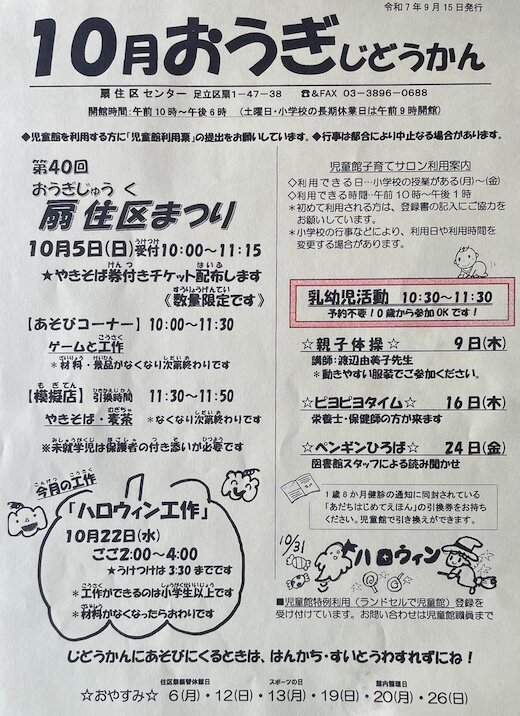 令和7年9月15日発行
10月おうぎじどうかん
扇住区センター 足立区扇1-47-38 ☎&FAX 03-3896-0688
開館時間:午前10時～午後6時 (土曜日・小学校の長期休業日は午前9時開館)
◆児童館を利用する方に「児童館利用票」の提出をお願いしています。◆行事は都合により中止なる場合があります。
第40回
おうぎじゅうく
扇住区まつり
10月5日(日)受付10:00～11:15
★やきそば券付きチケット配布します
《数量限定です》
【あそびコーナー】10:00～11:30
ゲームと工作
*材料・景品がなくなり次第終わりです
【模擬店】引換時間 11:30～11:50
やきそば・麦茶 *なくなり次第終わりです
※未就学児は保護者の付き添いが必要です
今月の工作
「ハロウィン工作」
10月22日(水)
ごご2:00～4:00
★うけつけは3:30までです
*工作ができるのは小学生以上です
*材料がなくなったらおわりです
児童館子育てサロン利用案内
◇利用できる日…小学校の授業がある(月)～(金)
◇利用できる時間…午前10時～午後1時
*初めて利用される方は、登録書の記入にご協力を
お願いしています。
*小学校の行事などにより、利用日や利用時間を
変更する場合があります。
乳幼児活動 10:30～11:30
予約不要!0歳から参加OKです!
☆親子体操☆ 9日(木)
講師:渡辺由美子先生
*動きやすい服装でご参加ください。
☆ピヨピヨタイム☆ 16日(木)
栄養士・保健師の方が来ます
☆ペンギンひろば☆ 24日(金)
図書館スタッフによる読み聞かせ
1歳6か月健診の通知に同封されている
「あだちはじめてえほん」の引換券をお持ち
ください。児童館で引き換えができます。
10/31
ハロウィン
■児童館特例利用(ランドセルで児童館)登録を
受け付けています。お問い合わせは児童館職員まで
じどうかんにあそびにくるときは、はんかち・すいとうわすれずにね!
住区祭振替休館日 スポーツの日 館内整理日
☆おやすみ☆ 6(月)・12(日)・13(月)・19(日)・20(月)・26(日)